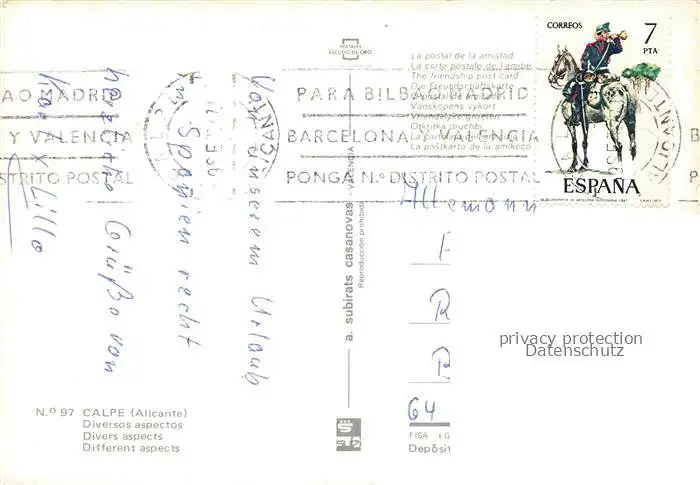 POSTALES
ESCUDO DE ORO
CORREOS
7
PTA
ESPAÑA
La postal de la amistad
La carte postale de l'amitié
The friendship post card
Die Freundschaftskarte
Vänskapens vykort
Vriendelijke groeten
Otkritka druchbi
La poŝtkarto de la amikeco
PARA BILBAO MADRID
BARCELONA Y VALENCIA
PONGA N.º DISTRITO POSTAL
AO MADRID
Y VALENCIA
STRITO POSTAL
ALICANTE
Von unserem Urlaub
in Spanien recht
herzliche Grüße von
Lillo
Allemann
64
a. subirats casanovas - VALENCIA
Reproducción prohibida
privacy protection
Datenschutz
N.º 97 CALPE (Alicante)
Diversos aspectos
Divers aspects
Different aspects
FISA I.G.
Depósit